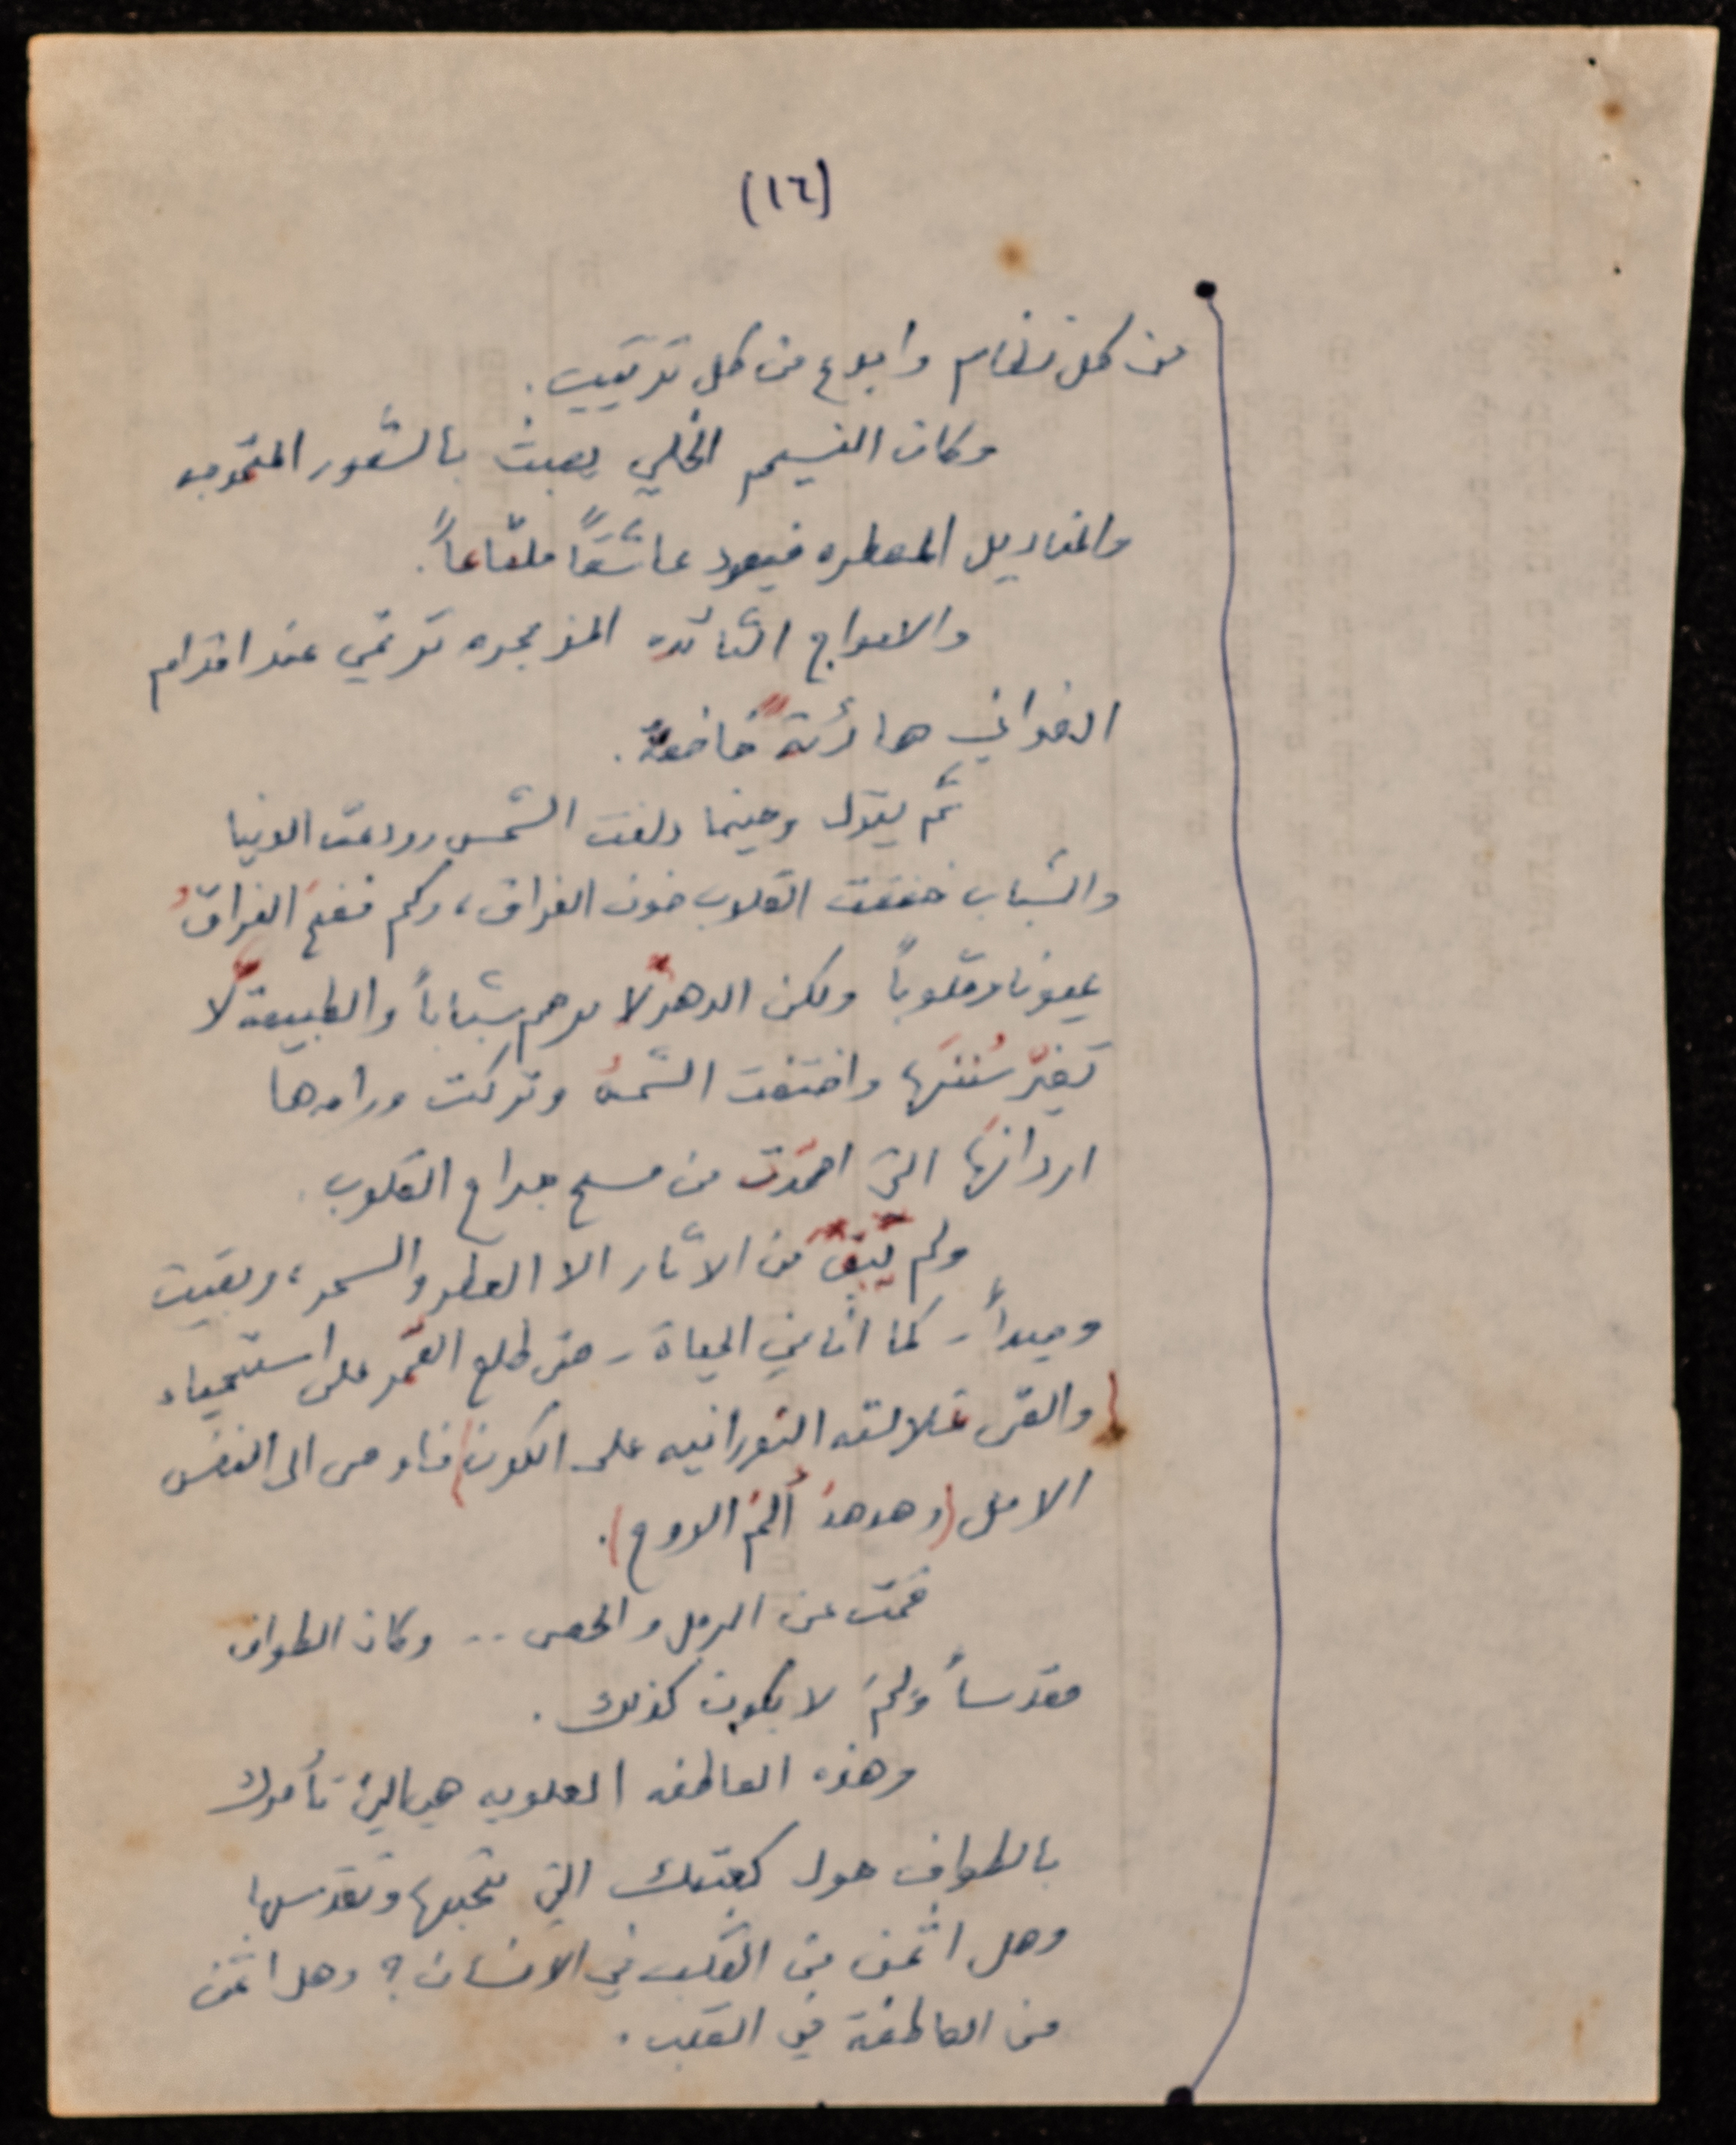 (١٦)
من كل نظام وابدع من كل ترتيب.
وكان النسيم الخلي يعبث بالشعور المتموجه
والمناديل المعطره فيعود عاشقاً ملتاعاً.
والامواج الثائره المزمجره ترتمي عند اقدام
الغواني هادئةً خاضعة.
ثم يقول وحينما دلفت الشمس وودعت الدنيا
والشباب خفقت القلوب خوف الفراق، وكم فجع الفراقُ
عيونا وقلوباً ولكن الدهر لا يرحم شباباً والطبيعة لا
تغيّر سُننَها واختفت الشمسُ وتركت وراءها
اردانَها التي احمرّت من مسح جراح القلوب.
ولم يَبْقَ من الاثار الا العطر والسحر، وبقيت
وحيداً - كما أنا في الحياة - حتى طلع القمر على استحياء
(والقى غلالته النورانيه على الكون) فاوحى الى النفس
الامل (وهدهدَ ألمَ الروح).
قمت عن الرمل والحصى .. وكان الطواف
مقدساً ولِمَ لا يكون كذلك.
وهذه العاطفه العلويه هي التي تأمرك
بالطواف حول كعبتك التي تحبها وتقدسها
وهل اثمن من القلب في الانسان؟ وهل اثمن
من العاطفة في القلب.